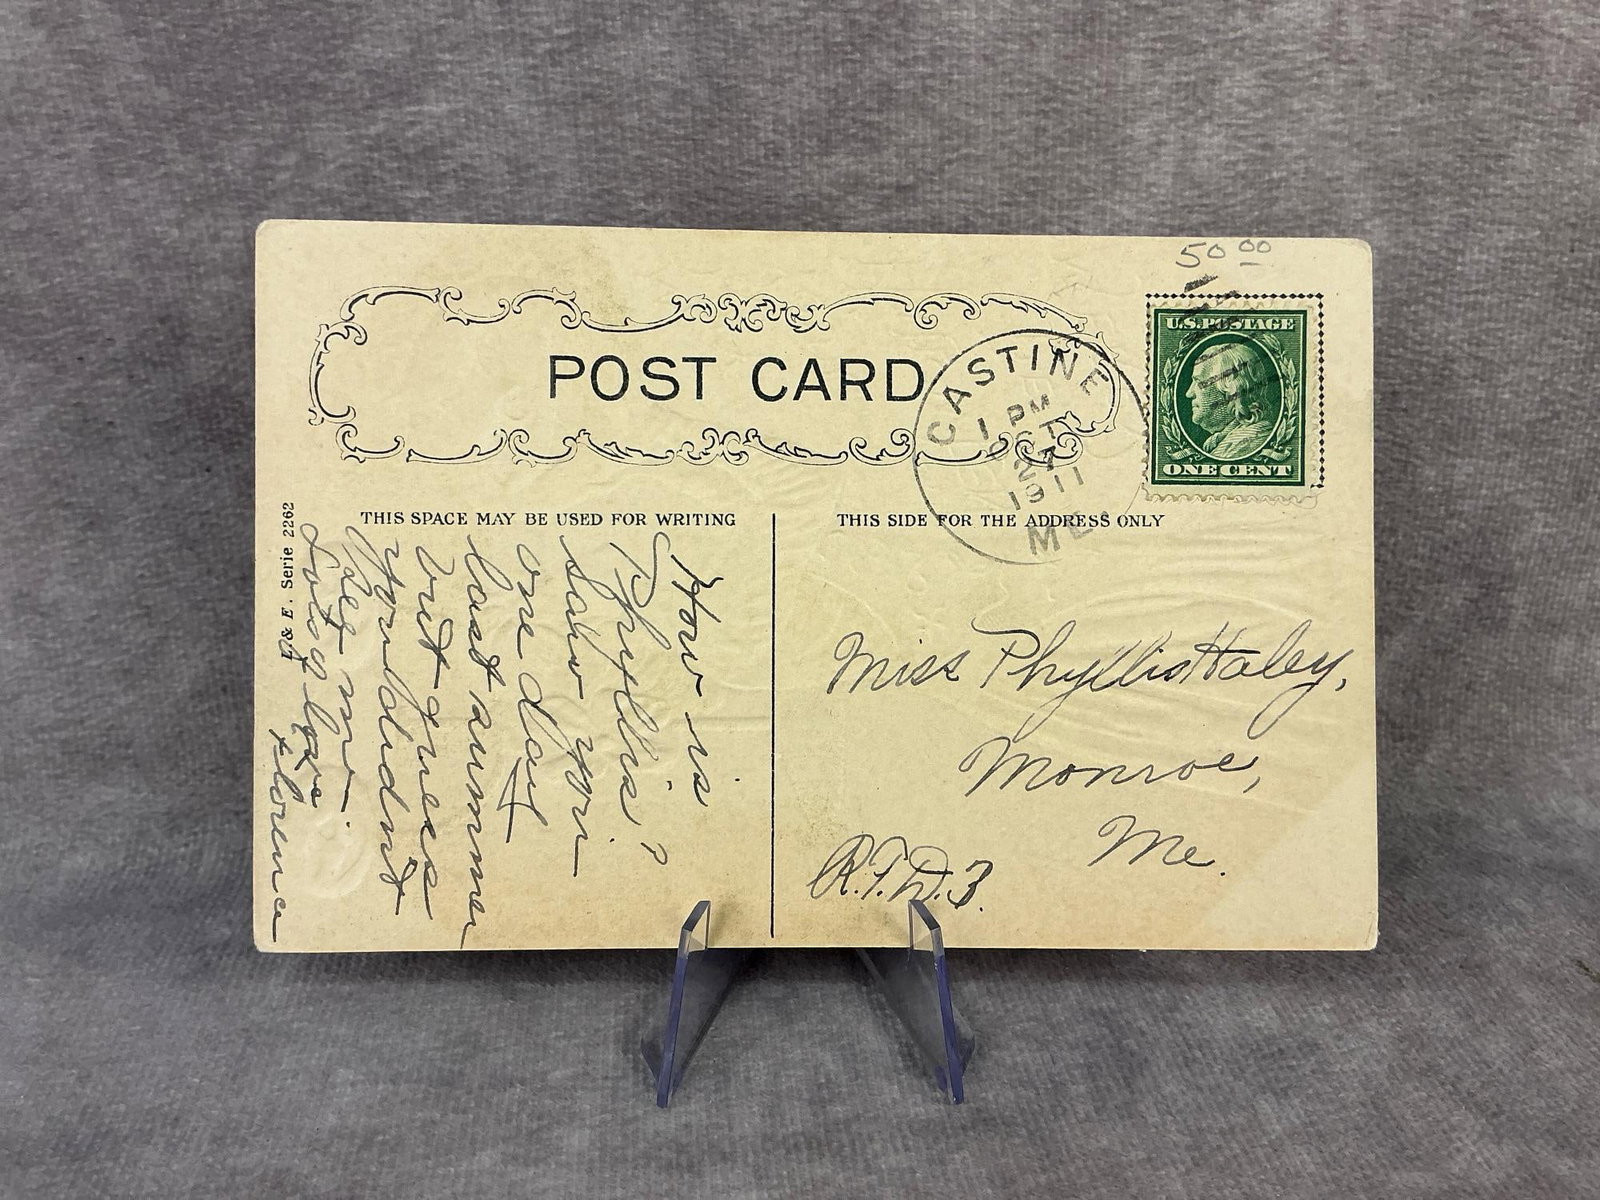 50 00
U.S. POSTAGE
ONE CENT
POST CARD
CASTINE
1 PM
OCT
27
1911
ME.
THIS SPACE MAY BE USED FOR WRITING
THIS SIDE FOR THE ADDRESS ONLY
E. Serie 2262
How is
Phyllis?
saw you
one day
last summer
but guess
you didnt
see me.
Lots of love
Florence
Miss Phyllis Haley,
Monroe,
Me.
R.F.D.3.